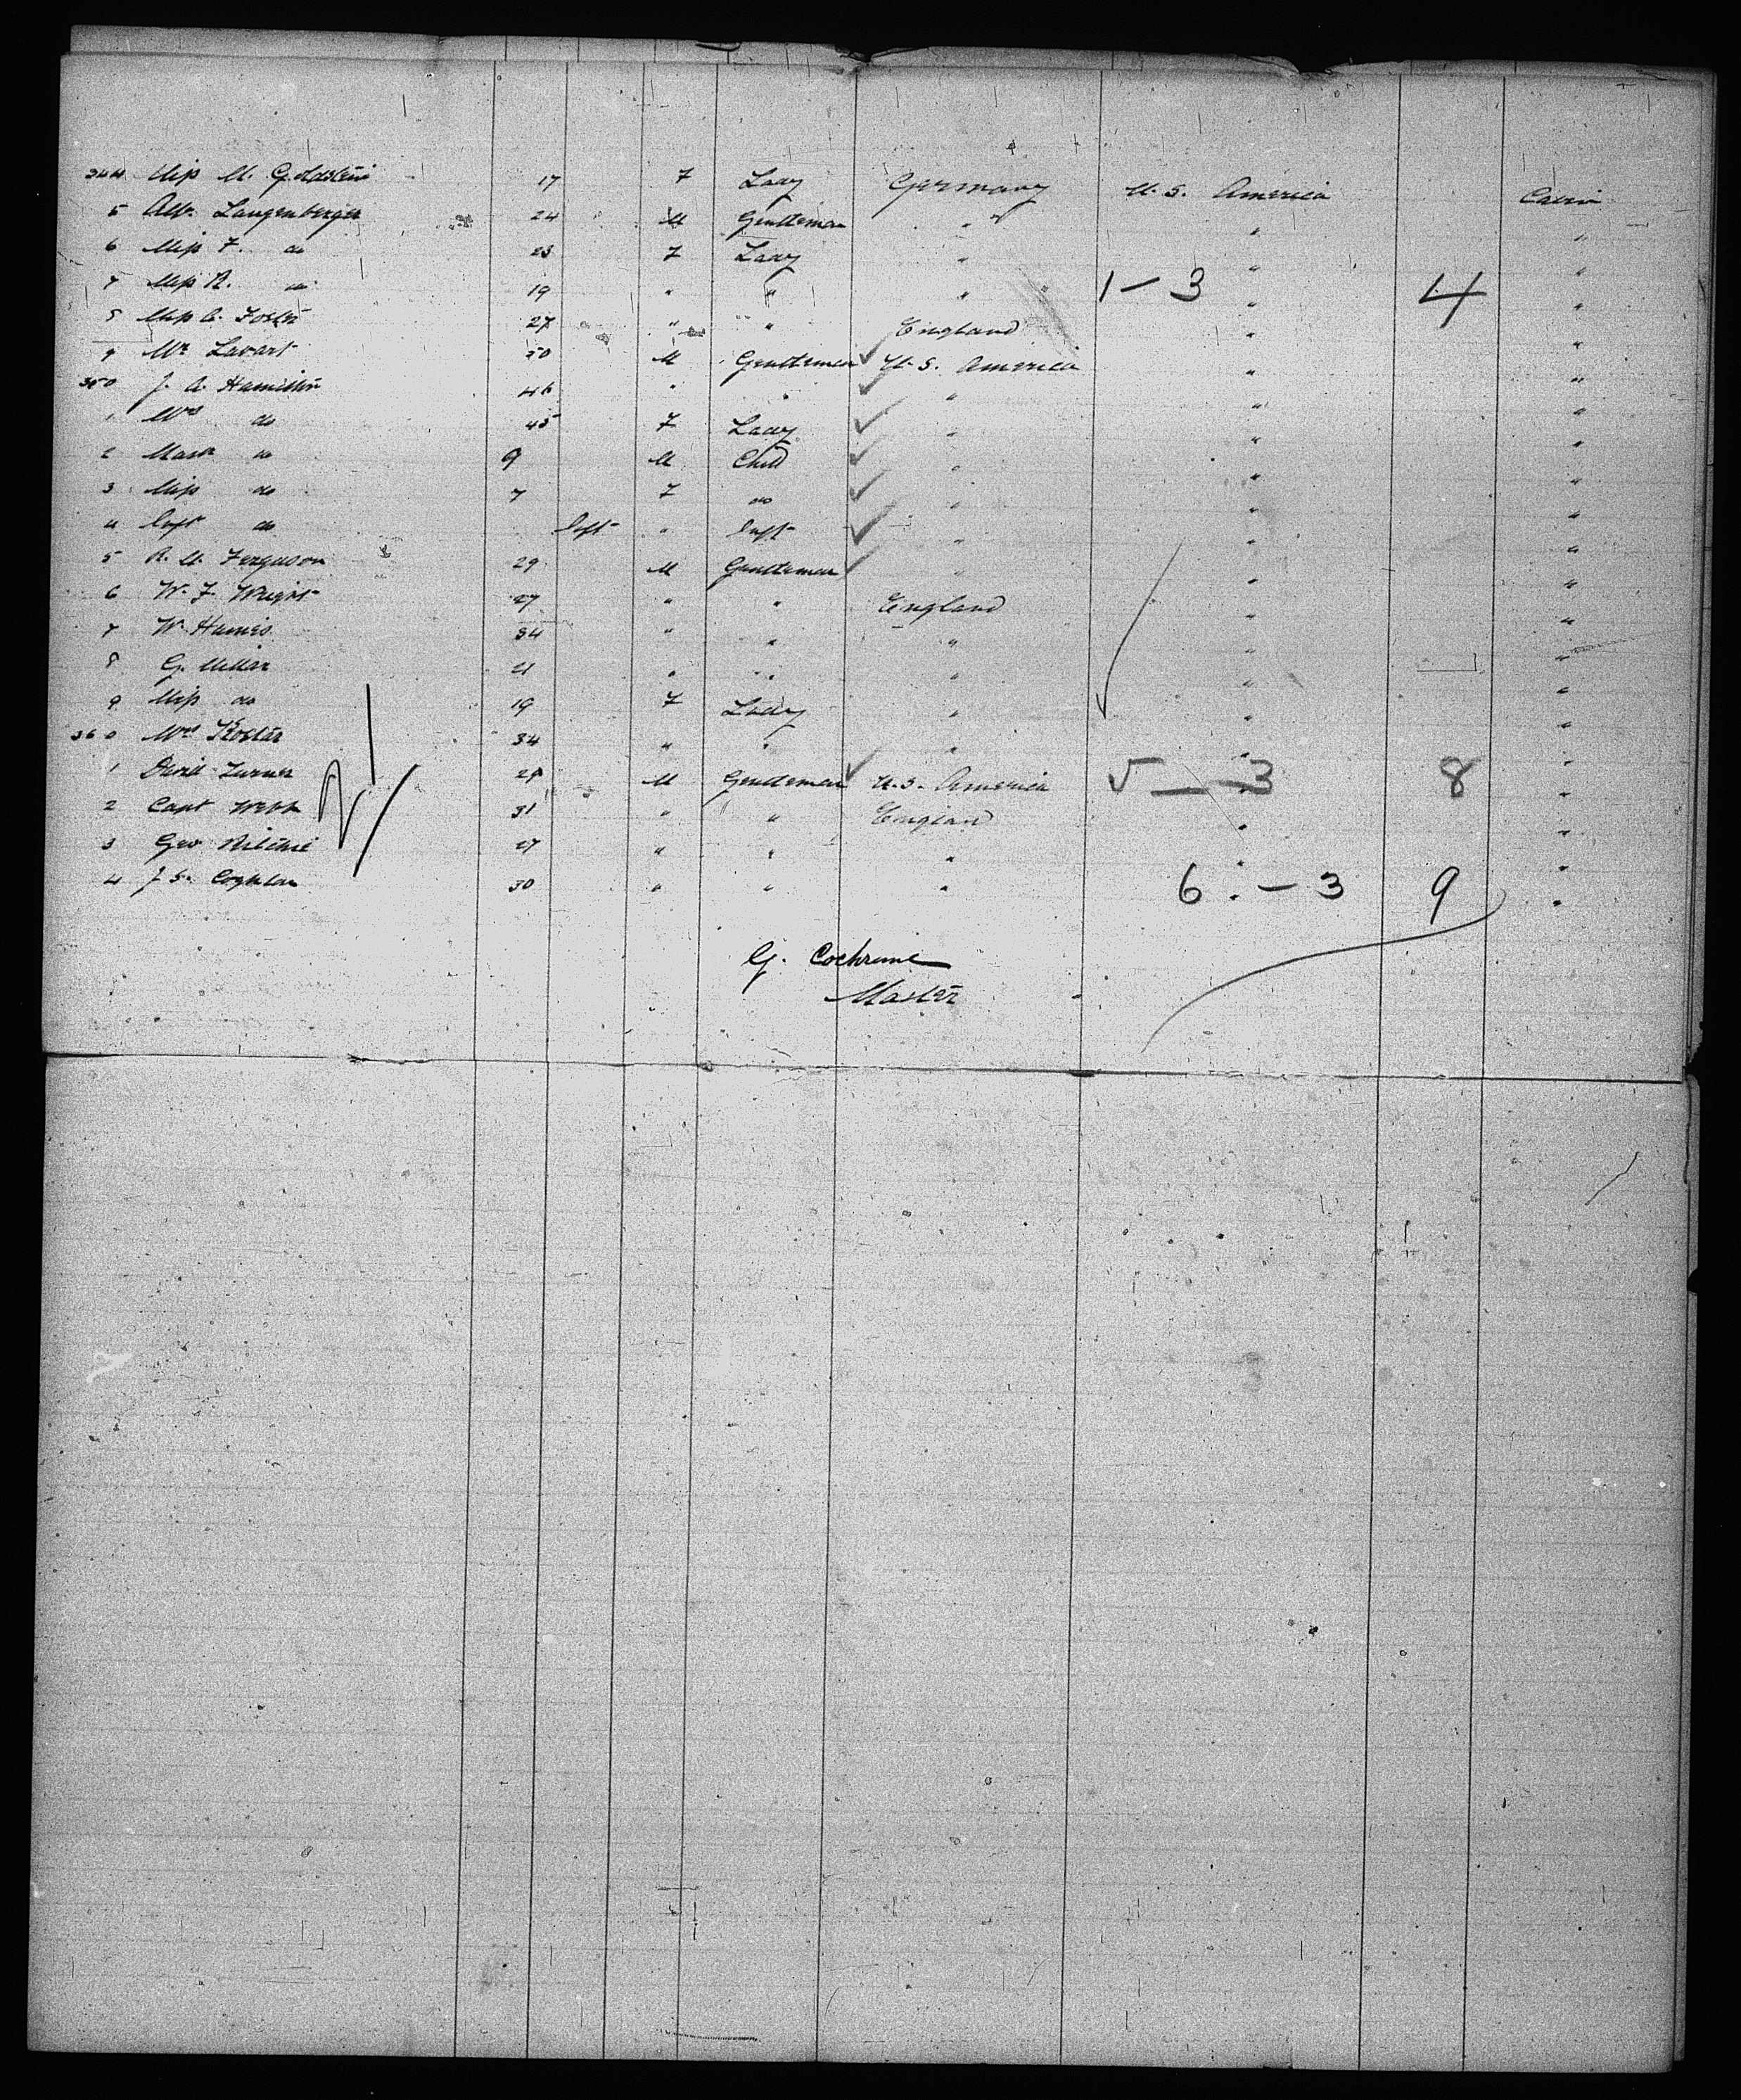 344 Miss M. Goldstein 17 F Lady Germany U. S. America Cabin
5 Alb. Langenberger 24 M Gentleman " " "
6 Miss F. do 23 F Lady " " "
7 Miss R. do 19 " " " 1 - 3 " 4 "
8 Miss C. Foster 27 " " England " "
9 Mr Lavart 50 M Gentleman ✓ U. S. America " "
350 J. A. Hamilton 46 " " ✓ " " "
1 Mrs do 45 F Lady ✓ " " "
2 Mast do 9 M Child ✓ " " "
3 Miss do 7 F do ✓ " " "
4 Inft do Inft " Inft ✓ " " "
5 R. M. Ferguson 29 M Gentleman ✓ " " "
6 W. F. Wright 27 " " England " "
7 W. 34 " " " " "
8 G. Millar 21 " " " " "
9 Miss do 19 F Lady " " "
360 Mrs 34 " " " " "
1 David Turner M Gentleman ✓ U. S. America 5 - 3 " 8 "
2 Capt Webb 31 " " England " "
3 Geo Ritchie 27 " " " " "
4 J. S. Coghlan 30 " " " 6 - 3 9 "
G. Cochrane
Master